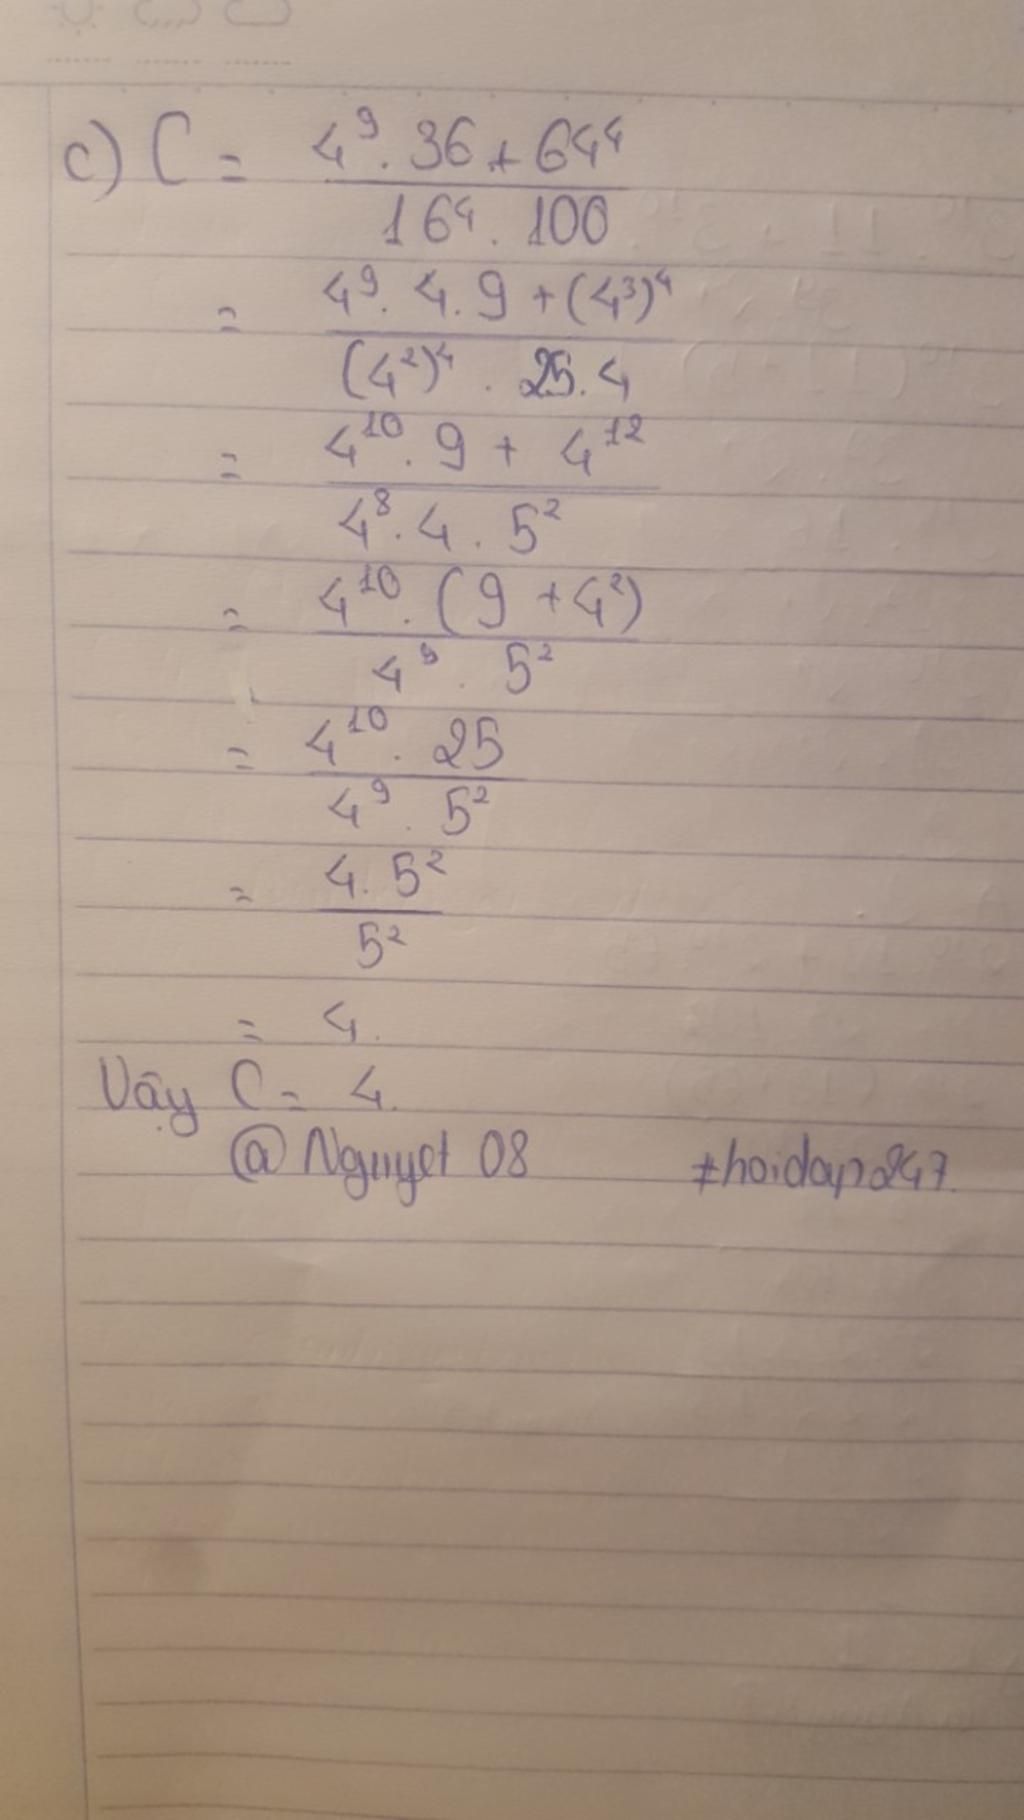 c) C = 4⁹ . 36 + 64⁴
16⁴ . 100
= 4⁹ . 4 . 9 + (4³)⁴
(4²)⁴ . 25 . 4
= 4¹⁰ . 9 + 4¹²
4⁸ . 4 . 5²
= 4¹⁰ . (9 + 4²)
4⁹ . 5²
= 4¹⁰ . 25
4⁹ . 5²
= 4 . 5²
5²
= 4.
Vậy C = 4.
@Nguyet 08 #hoidap247.